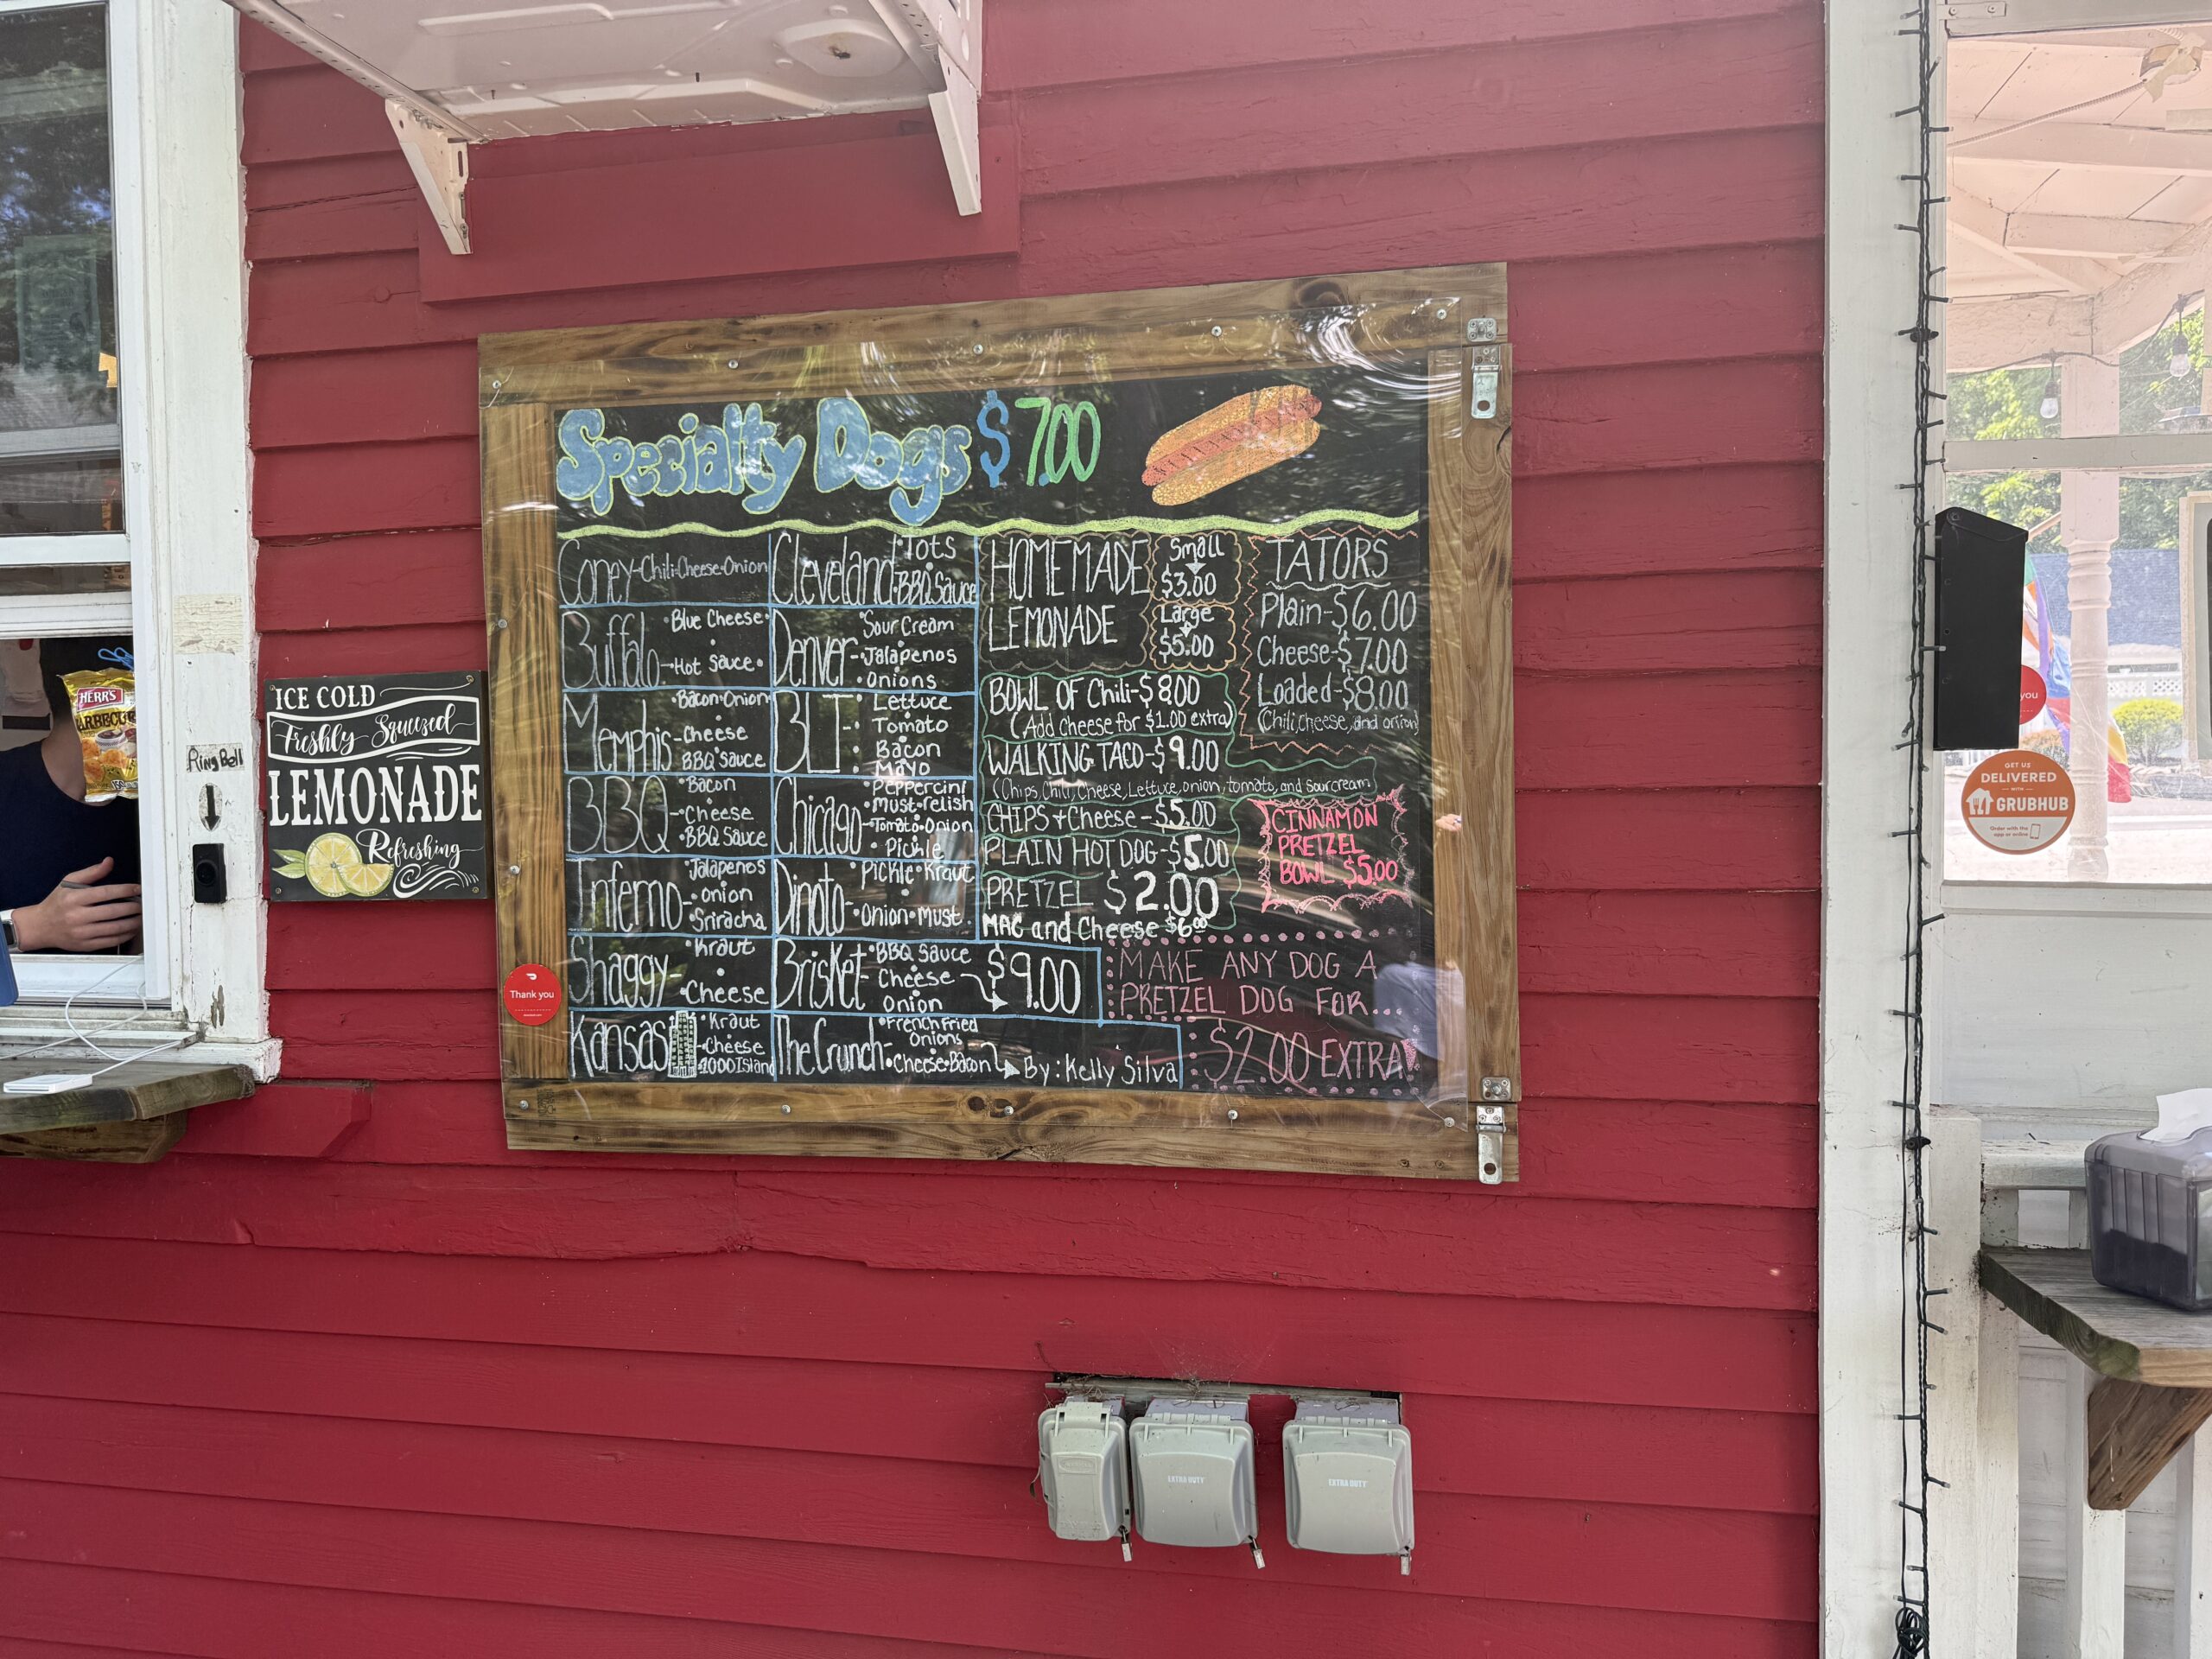 Specialty Dogs $7.00
Coney-Chili•Cheese•Onion
Buffalo
•Blue Cheese•
-Hot Sauce•
Memphis
•Bacon•Onion
-Cheese
BBQ Sauce
BBQ
•Bacon
-Cheese
•BBQ Sauce
Inferno
Jalapenos
-•onion
•Sriracha
Shaggy-
•Kraut
•Cheese
Kansas
•Kraut
-Cheese
•1000Island
Cleveland
•Tots
•BBQ Sauce
Denver
•Sour Cream
-•Jalapenos
•Onions
BLT:
Lettuce
Tomato
Bacon
Mayo
Chicago
Peppercini
•Must•relish
-Tomato•Onion
•Pickle
Dinoto
•Pickle•Kraut
-•Onion•Must.
Brisket
•BBQ Sauce
Cheese
Onion
$9.00
The Crunch-
•French Fried
Onions
•Cheese•Bacon
By: Kelly Silva
HOMEMADE
LEMONADE
Small
$3.00
Large
$5.00
BOWL OF Chili-$8.00
(Add Cheese for $1.00 extra)
WALKING TACO-$9.00
(Chips, Chili, Cheese, Lettuce, onion, tomato, and sour cream
CHIPS + Cheese - $5.00
PLAIN HOT DOG-$5.00
PRETZEL $2.00
MAC and Cheese $6.00
TATORS
Plain-$6.00
Cheese-$7.00
Loaded-$8.00
(Chili, cheese, and onion)
CINNAMON
PRETZEL
BOWL $5.00
MAKE ANY DOG A
PRETZEL DOG FOR...
$2.00 EXTRA!
Thank you
ICE COLD
Freshly Squeezed
LEMONADE
Refreshing
Ring Bell
HERR'S
BARBECUE
GET US
DELIVERED
WITH
GRUBHUB
Order with the
app or online
you
EXTRA DUTY
EXTRA DUTY